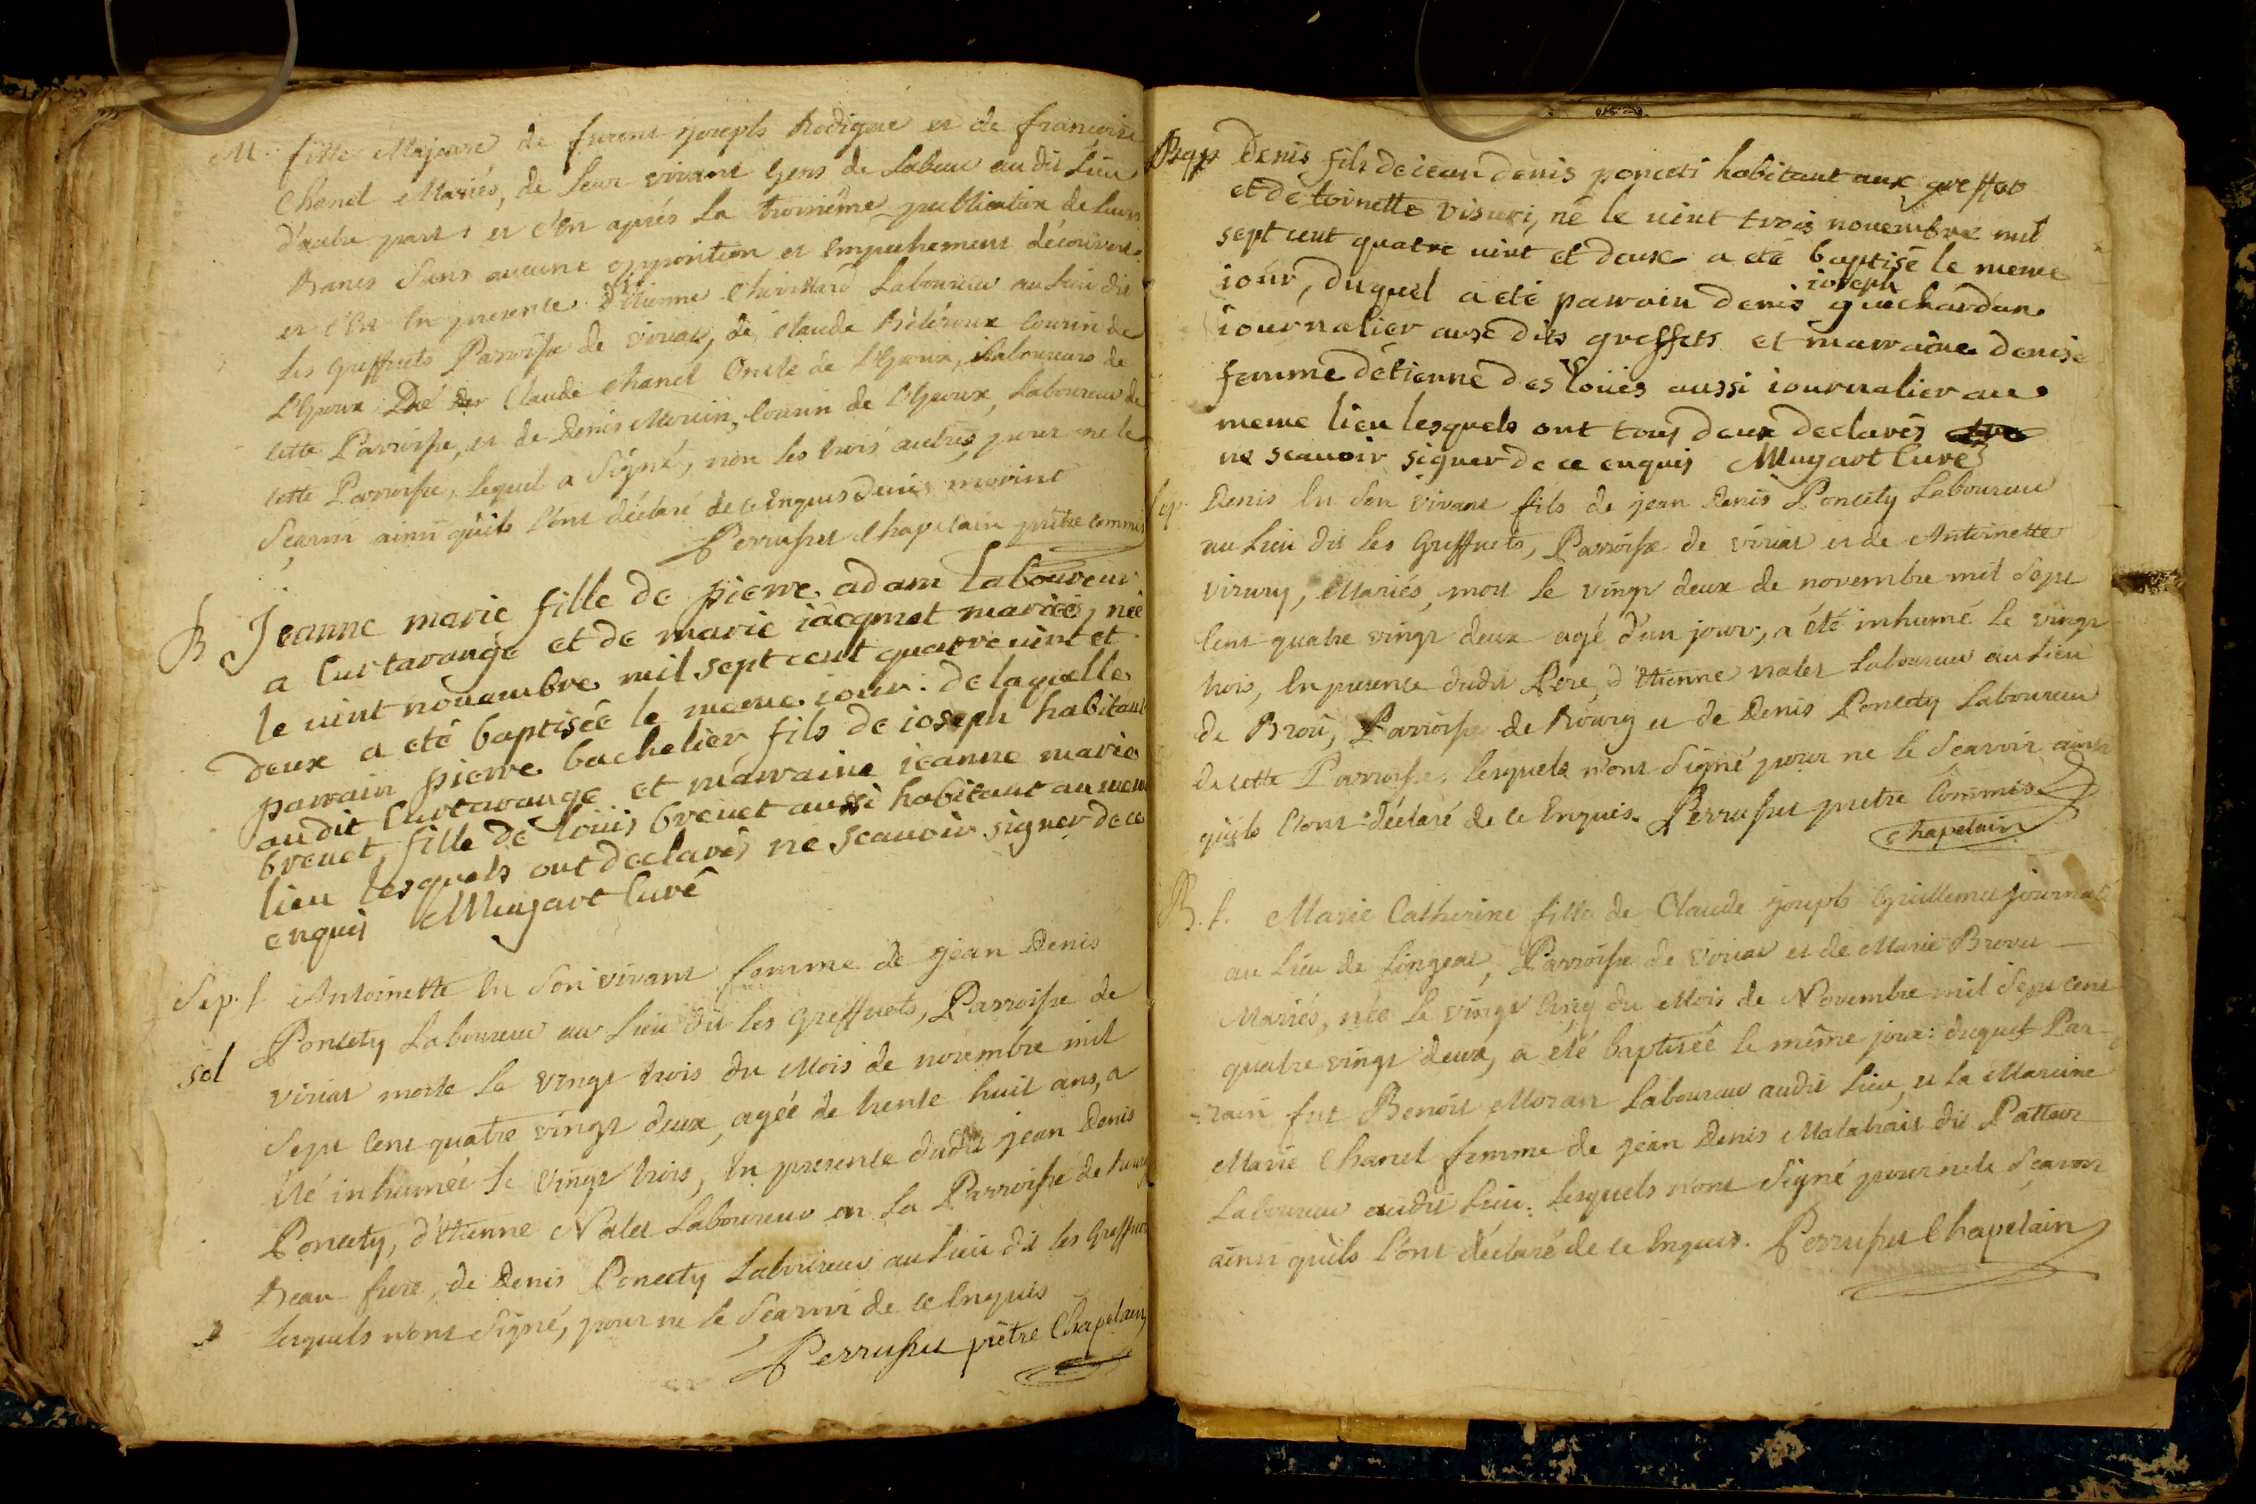 M. fille Majeure de furent joseph Rodigue et de francoise
Chanel Mariés, de leur vivant gens de Labeur audit Lieu
d'autre part : et c'en aprés la troisième publication de leurs
Bancs sans aucune opposition et empechement découvert.
et c'est en presence d'Etienne Laboureur au lieu dit
les Greffuets Parroisse de viriat, de Claude Bédéroux Cousin de
L'Epoux, de Claude Chanel Oncle de L'Epoux, Laboureurs de
cette Parroisse, et de Denis Morin, Cousin de L'Epoux, Laboureur de
cette Parroisse, lequel a signé, non les trois autres, pour ne le
Scavoir ainsi qu'ils l'ont déclaré de ce Enquis Denis morint
Perrusset Chapelain prêtre commis
B Jeanne marie fille de pierre adam laboureur
a Curtarange et de marie iacqmet mariés, née
le vint nouembre mil sept cent quatre uint et
deux a eté baptisée le meme iour. de laquelle
parrain pierre bachelier fils de ioseph habitant
audit Curtarange et marraine ieanne marie
breuet fille de loüis breuet aussi habitant au meme
lieu lesquels ont declarés ne scauoir signer de ce
enquis Mugart Curé
Sep. f Antoinette en son vivant femme de jean Denis
Poncety Laboureur au lieu dit les Greffuets, Parroisse de
sol
viriat morte le vingt trois du Mois de novembre mil
Sept Cent quatre vingt deux, agée de trente huit ans, a
été inhumée le vingt trois, en presence dudit jean Denis
Poncety, d'Etienne Nalet Laboureur en la Parroisse de
Beau frere, de Denis Poncety Laboureur au lieu dit les Greffuets
lesquels n'ont signé, pour ne le Scavoir de ce Enquis
Perrusset prêtre Chapelain
Bap Denis fils de iean denis ponceti habitant aux greffets
et de toinette visuri, né le uint trois nouembre mil
sept cent quatre uint et deux a eté baptisé le meme
ioseph
iour, duquel a eté parrain denis guichardan
iournalier aux dits greffets et marraine denise
femme detienne des loües aussi iournalier au
meme lieu lesquels ont tous deux declarés
ne scauoir signer de ce enquis Mugart Curé
Sep. Denis en son vivant fils de jean Denis Poncety Laboureur
au lieu dit les Greffuets, Parroisse de viriat et de Antoinette
virury, Mariés, mort le vingt deux de novembre mil Sept
Cent quatre vingt deux agé d'un jour, a été inhumé le vingt
trois, en presence dudit Pere, d'Etienne nalet Laboureur au lieu
de Brou, Parroisse de Bourg et de Denis Poncety Laboureur
de cette Parroisse, lesquels n'ont signé pour ne le Scavoir ainsi
qu'ils l'ont déclaré de ce Enquis. Perrusset prêtre Commis
chapelain
B. f. Marie Catherine fille de Claude joseph Guillemet journal
au lieu de Lingeat, Parroisse de viriat et de Marie Brevet
Mariés, née le vingt Cinq du Mois de Novembre mil Sept cent
quatre vingt deux, a été baptisée le même jour : duquel Par-
-rain fut Benoit Moran Laboureur audit lieu, et la Mareine
Marie Chanel femme de jean Denis Malatrait dit Patteur
Laboureur audit lieu : lesquels n'ont signé pour ne le Scavoir
ainsi qu'ils l'ont déclaré de ce Enquis. Perrusset Chapelain